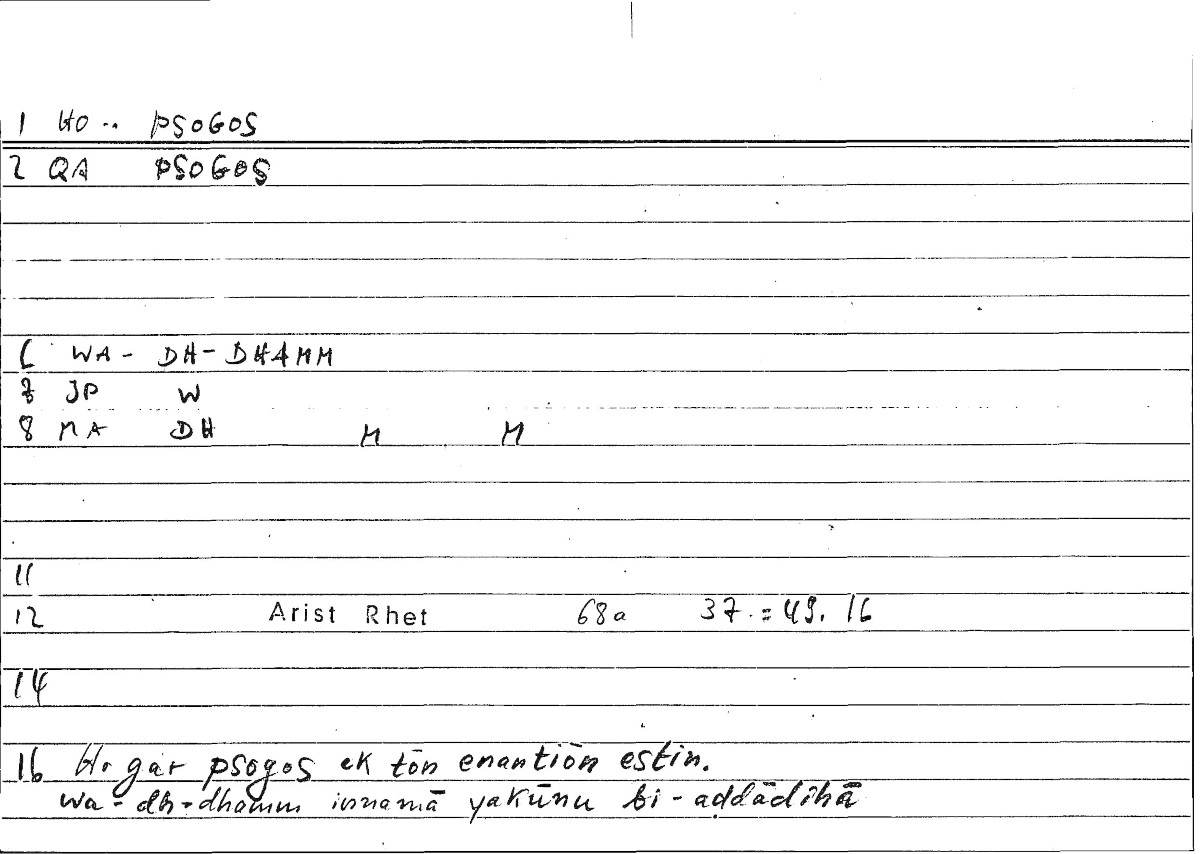 1 HO .. PSOGOS
2 QA PSOGOS
6 WA - DH - DHAMM
7 JP W
8 MA DH M M
11
12 Arist Rhet 68a 37 = 49. 16
14
16 Ho gar psogos ek tōn enantiōn estin.
wa - dh - dhamm innamā yakūnu bi - aḍdādihā